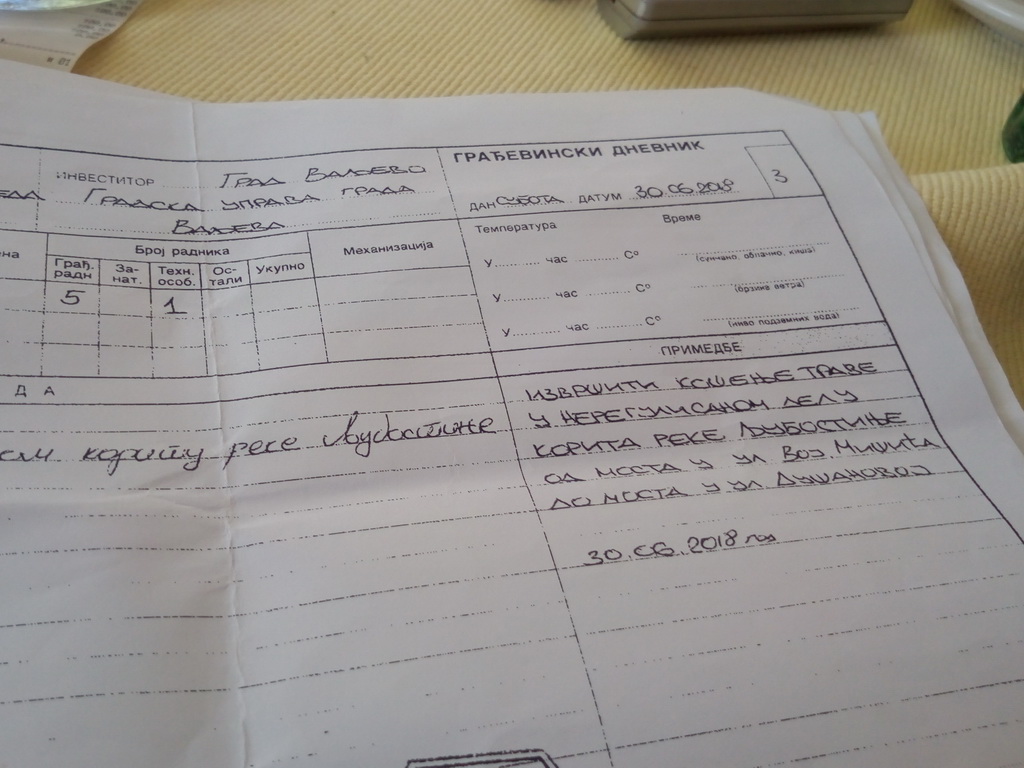 ГРАЂЕВИНСКИ ДНЕВНИК
3
ИНВЕСТИТОР ГРАД ВАЉЕВО
ГРАДСКА УПРАВА ГРАДА
ВАЉЕВА
ДАН СУБОТА ДАТУМ 30.06.2018
Број радника
Механизација
Грађ. радн
За- нат.
Техн. особ.
Ос- тали
Укупно
5 1
Температура Време
У.......... час .......... С°
(сунчано, облачно, киша)
У.......... час .......... С°
(брзина ветра)
У.......... час .......... С°
(ниво подземних вода)
Д А
ПРИМЕДБЕ
кориту реке Љубостиње
ИЗВРШИТИ КОШЕЊЕ ТРАВЕ
У НЕРЕГУЛИСАНОМ ДЕЛУ
КОРИТА РЕКЕ ЉУБОСТИЊЕ
ОД МОСТА У УЛ ВОЈ МИШИЋА
ДО МОСТА У УЛ ДУШАНОВОЈ
30.06.2018 год